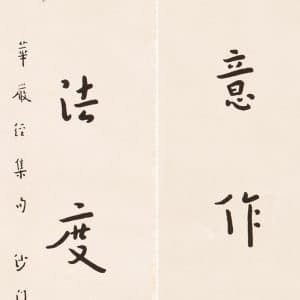 意作
法度
華嚴經集句 沙门